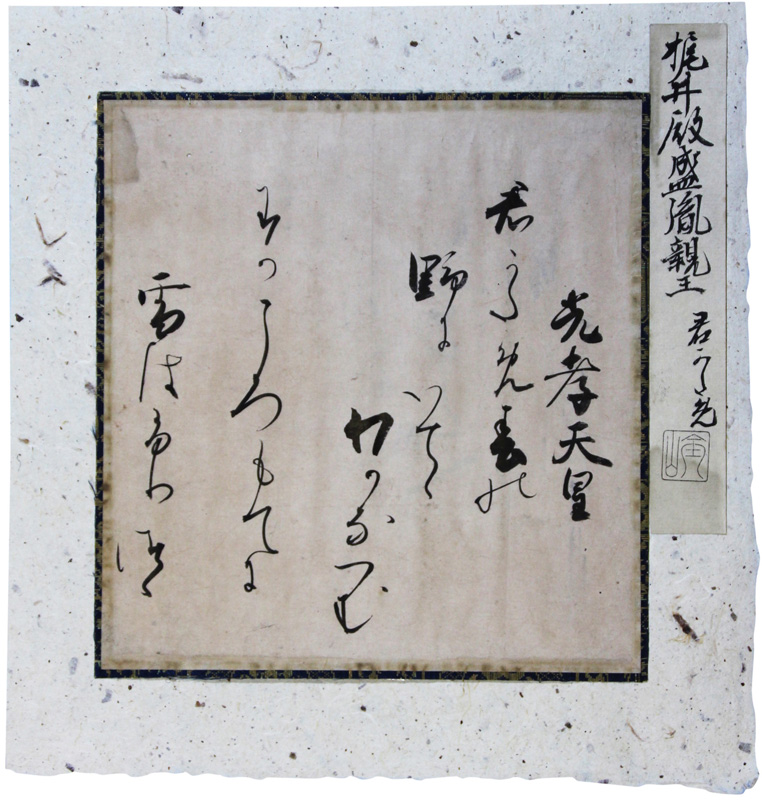 梶井殿盛胤親王 君かため
光孝天皇
君かため春の
野にいてゝ
わかなつむ
わかころもてに
雪はふりつゝ